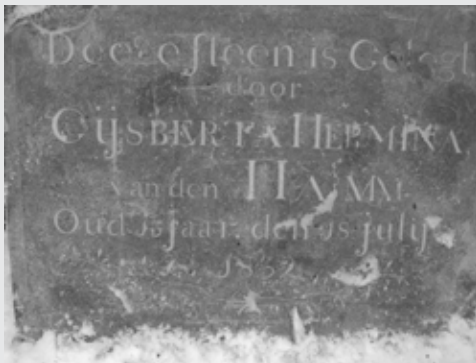 Deeze ſteen is Gelegt
door
GijsBERTA HERMINA
van den HAMM
Oud jaar den julij